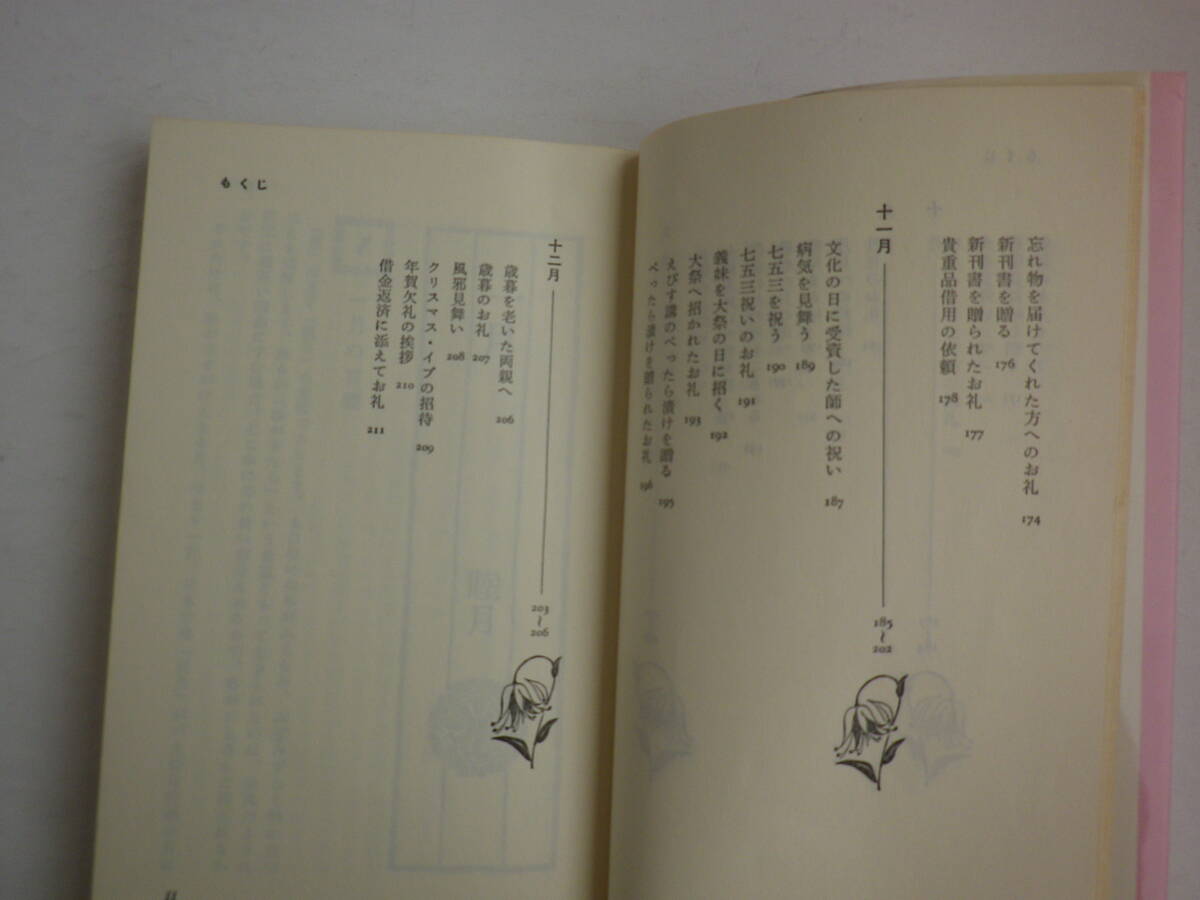 忘れ物を届けてくれた方へのお礼 174
新刊書を贈る 176
新刊書を贈られたお礼 177
貴重品借用の依頼 178
十一月 185〜202
文化の日に受賞した師への祝い 187
病気を見舞う 189
七五三を祝う 190
七五三祝いのお礼 191
義妹を大祭の日に招く 192
大祭へ招かれたお礼 193
えびす講のべったら漬けを贈る 195
べったら漬けを贈られたお礼 196
十二月 203〜206
歳暮を老いた両親へ 206
歳暮のお礼 207
風邪見舞い 208
クリスマス・イブの招待 209
年賀欠礼の挨拶 210
借金返済に添えてお礼 211
もくじ
睦月